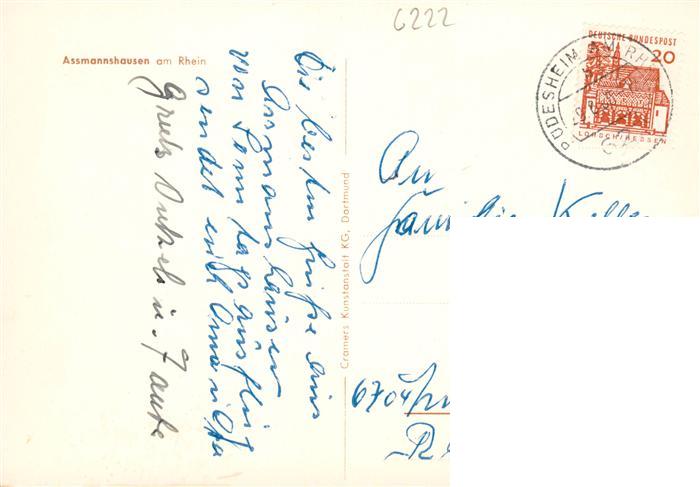 6222
Assmannshausen am Rhein
Die besten Grüße aus
Assmannshausen
vom Sonntagsausflug
sendet euch Oma u Opa
Gruß Onkel u. Tante
Cramers Kunstanstalt KG, Dortmund
DEUTSCHE BUNDESPOST
20
LORSCH/HESSEN
RÜDESHEIM AM RHEIN
An
Familie Keller
6704